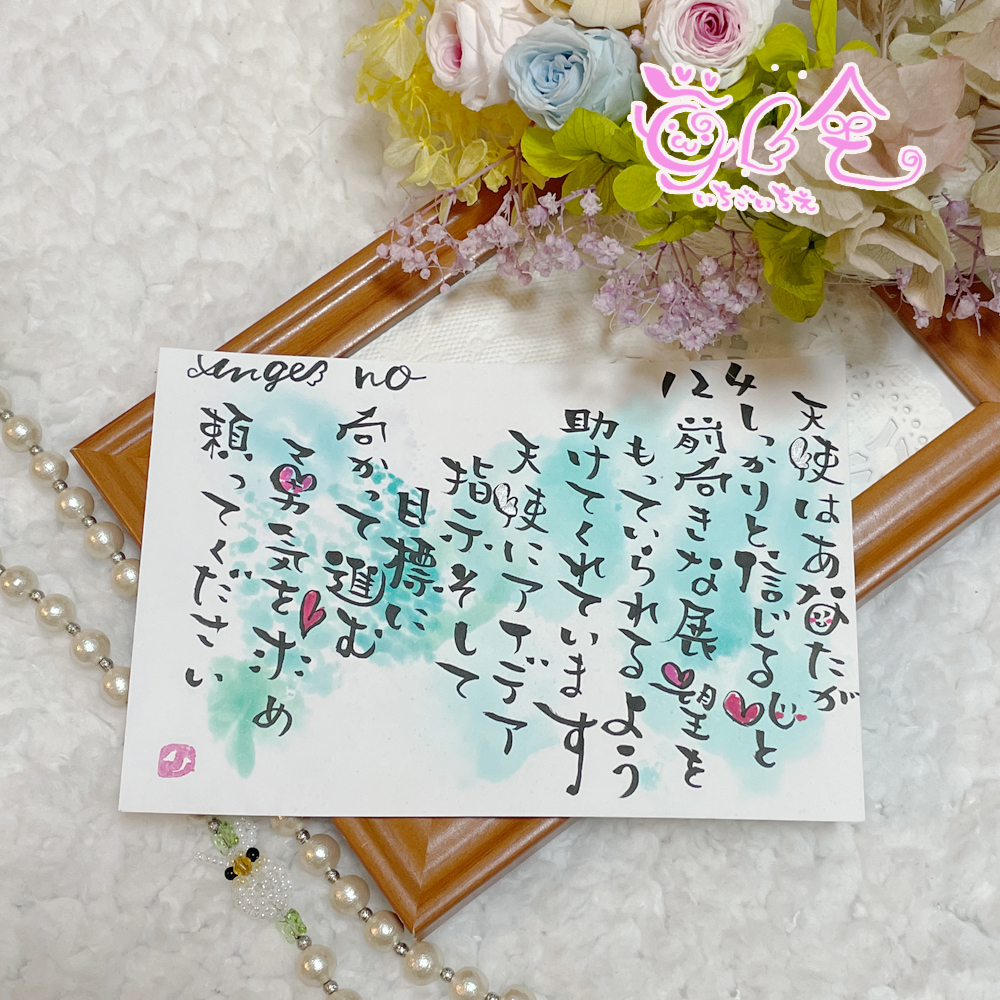 Angel no
124
天使はあなたが
しっかりと信じる心と
前向きな展望を
もっていられるよう
助けてくれています
天使にアイデア
指示そして
目標に
向かって進む
勇気を求め
頼ってください
いちごいちえ